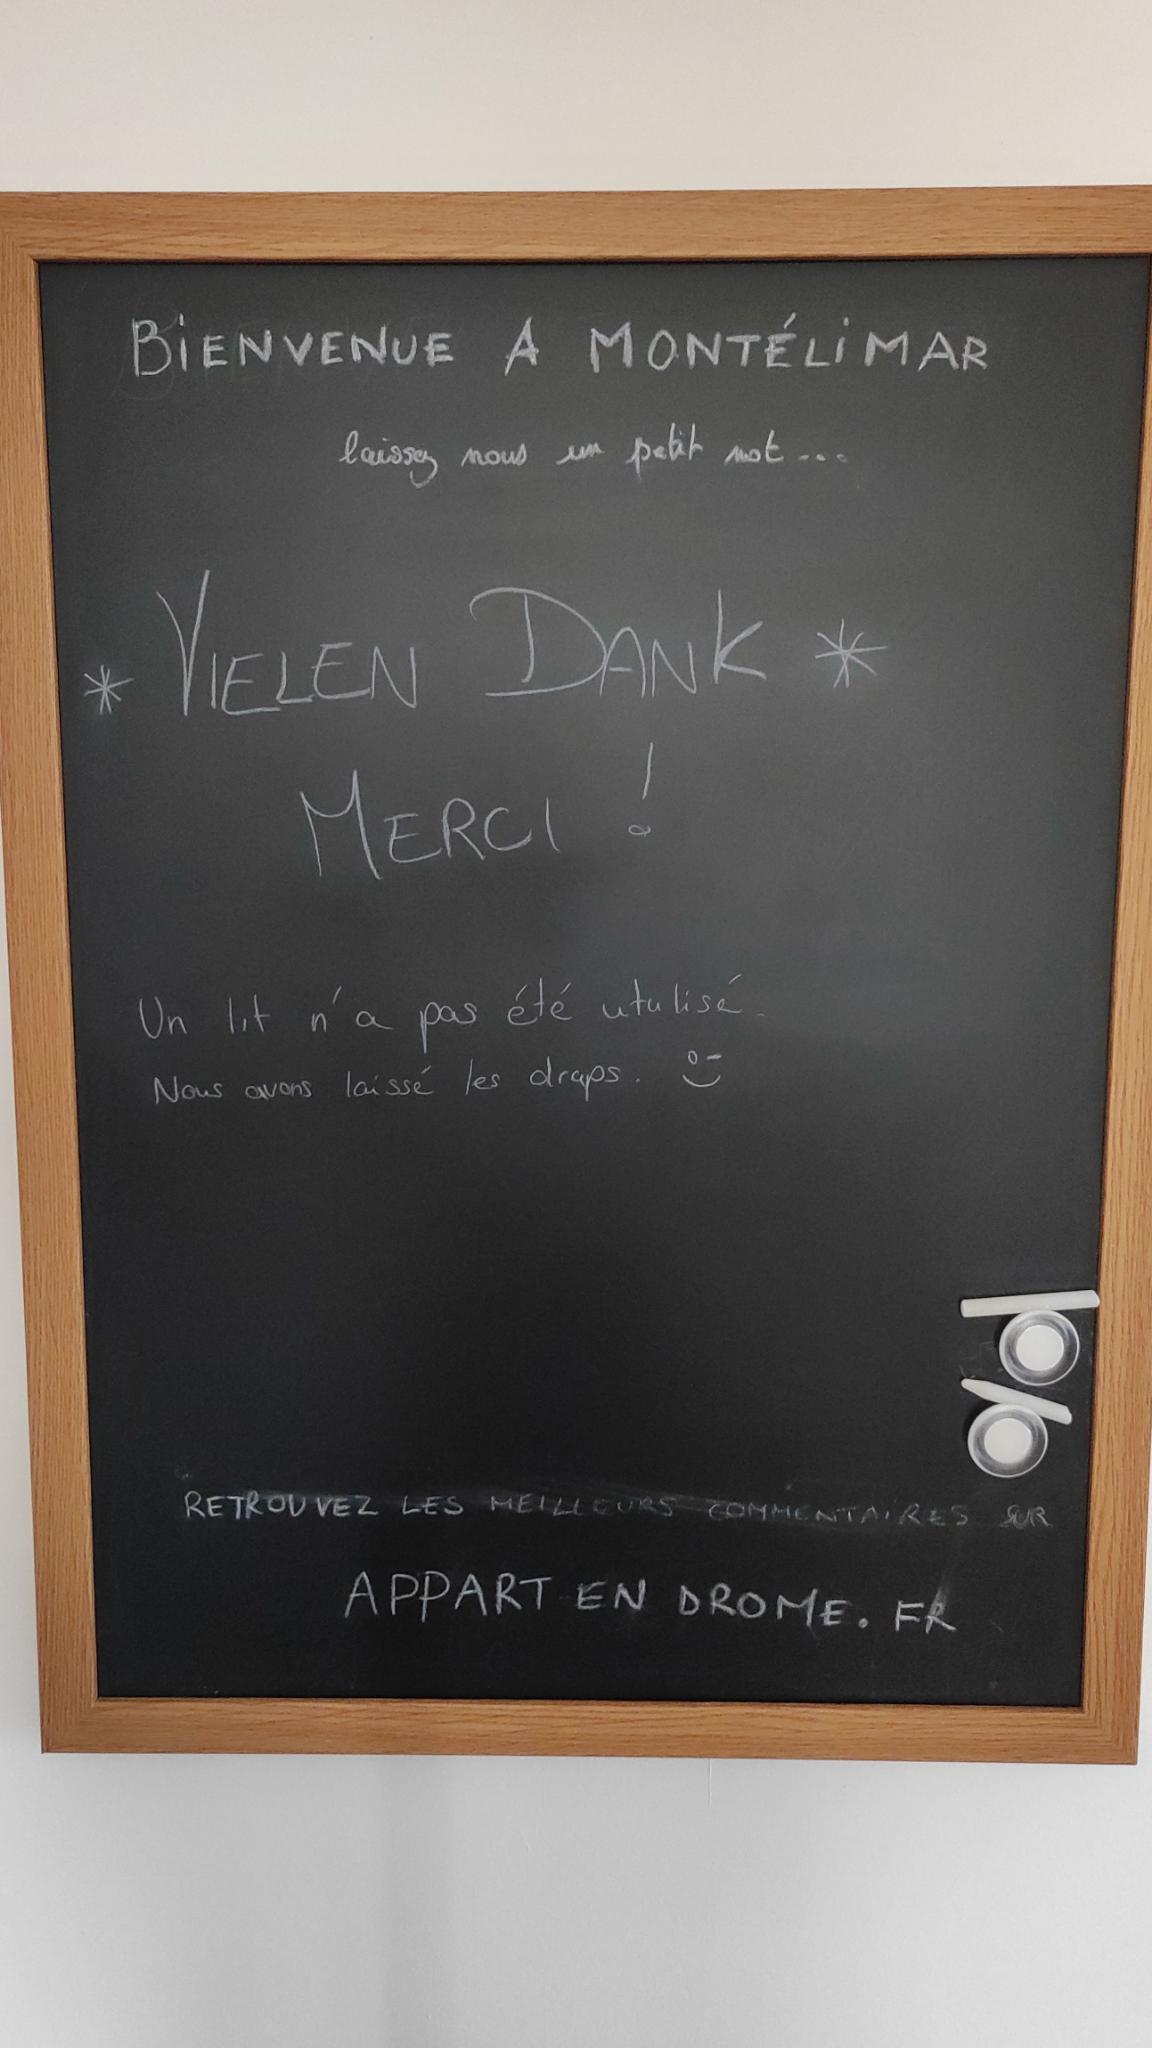 BIENVENUE A MONTÉLIMAR
laissez nous un petit mot...
* VIELEN DANK *
MERCI !
Un lit n'a pas été utulisé.
Nous avons laissé les draps.
RETROUVEZ LES MEILLEURS COMMENTAIRES SUR
APPART EN DROME. FR